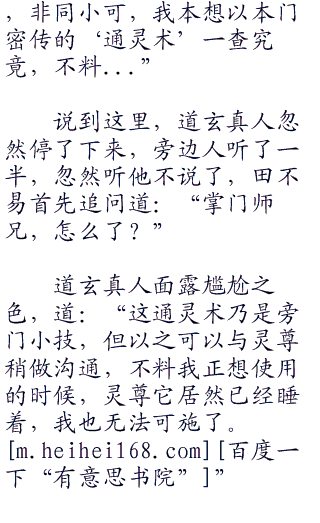 ，非同小可，我本想以本门
密传的‘通灵术’一查究
竟，不料...”
说到这里，道玄真人忽
然停了下来，旁边人听了一
半，忽然听他不说了，田不
易首先追问道：“掌门师
兄，怎么了？”
道玄真人面露尴尬之
色，道：“这通灵术乃是旁
门小技，但以之可以与灵尊
稍做沟通，不料我正想使用
的时候，灵尊它居然已经睡
着，我也无法可施了。
[m.heihei168.com][百度一
下“有意思书院”]”